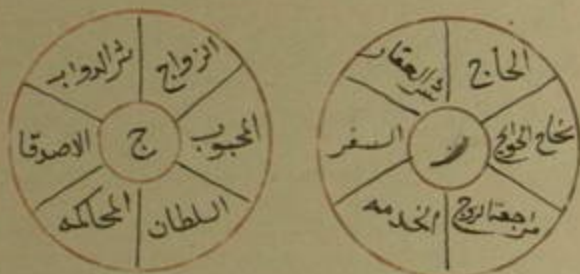 الحاج
نجاح الحوائج
مراجعة الزوج
الخدمه
السفر
شر العقار
ز
الزواج
المحبوب
السلطان
المحاكمه
الاصدقا
شر الدواب
ج